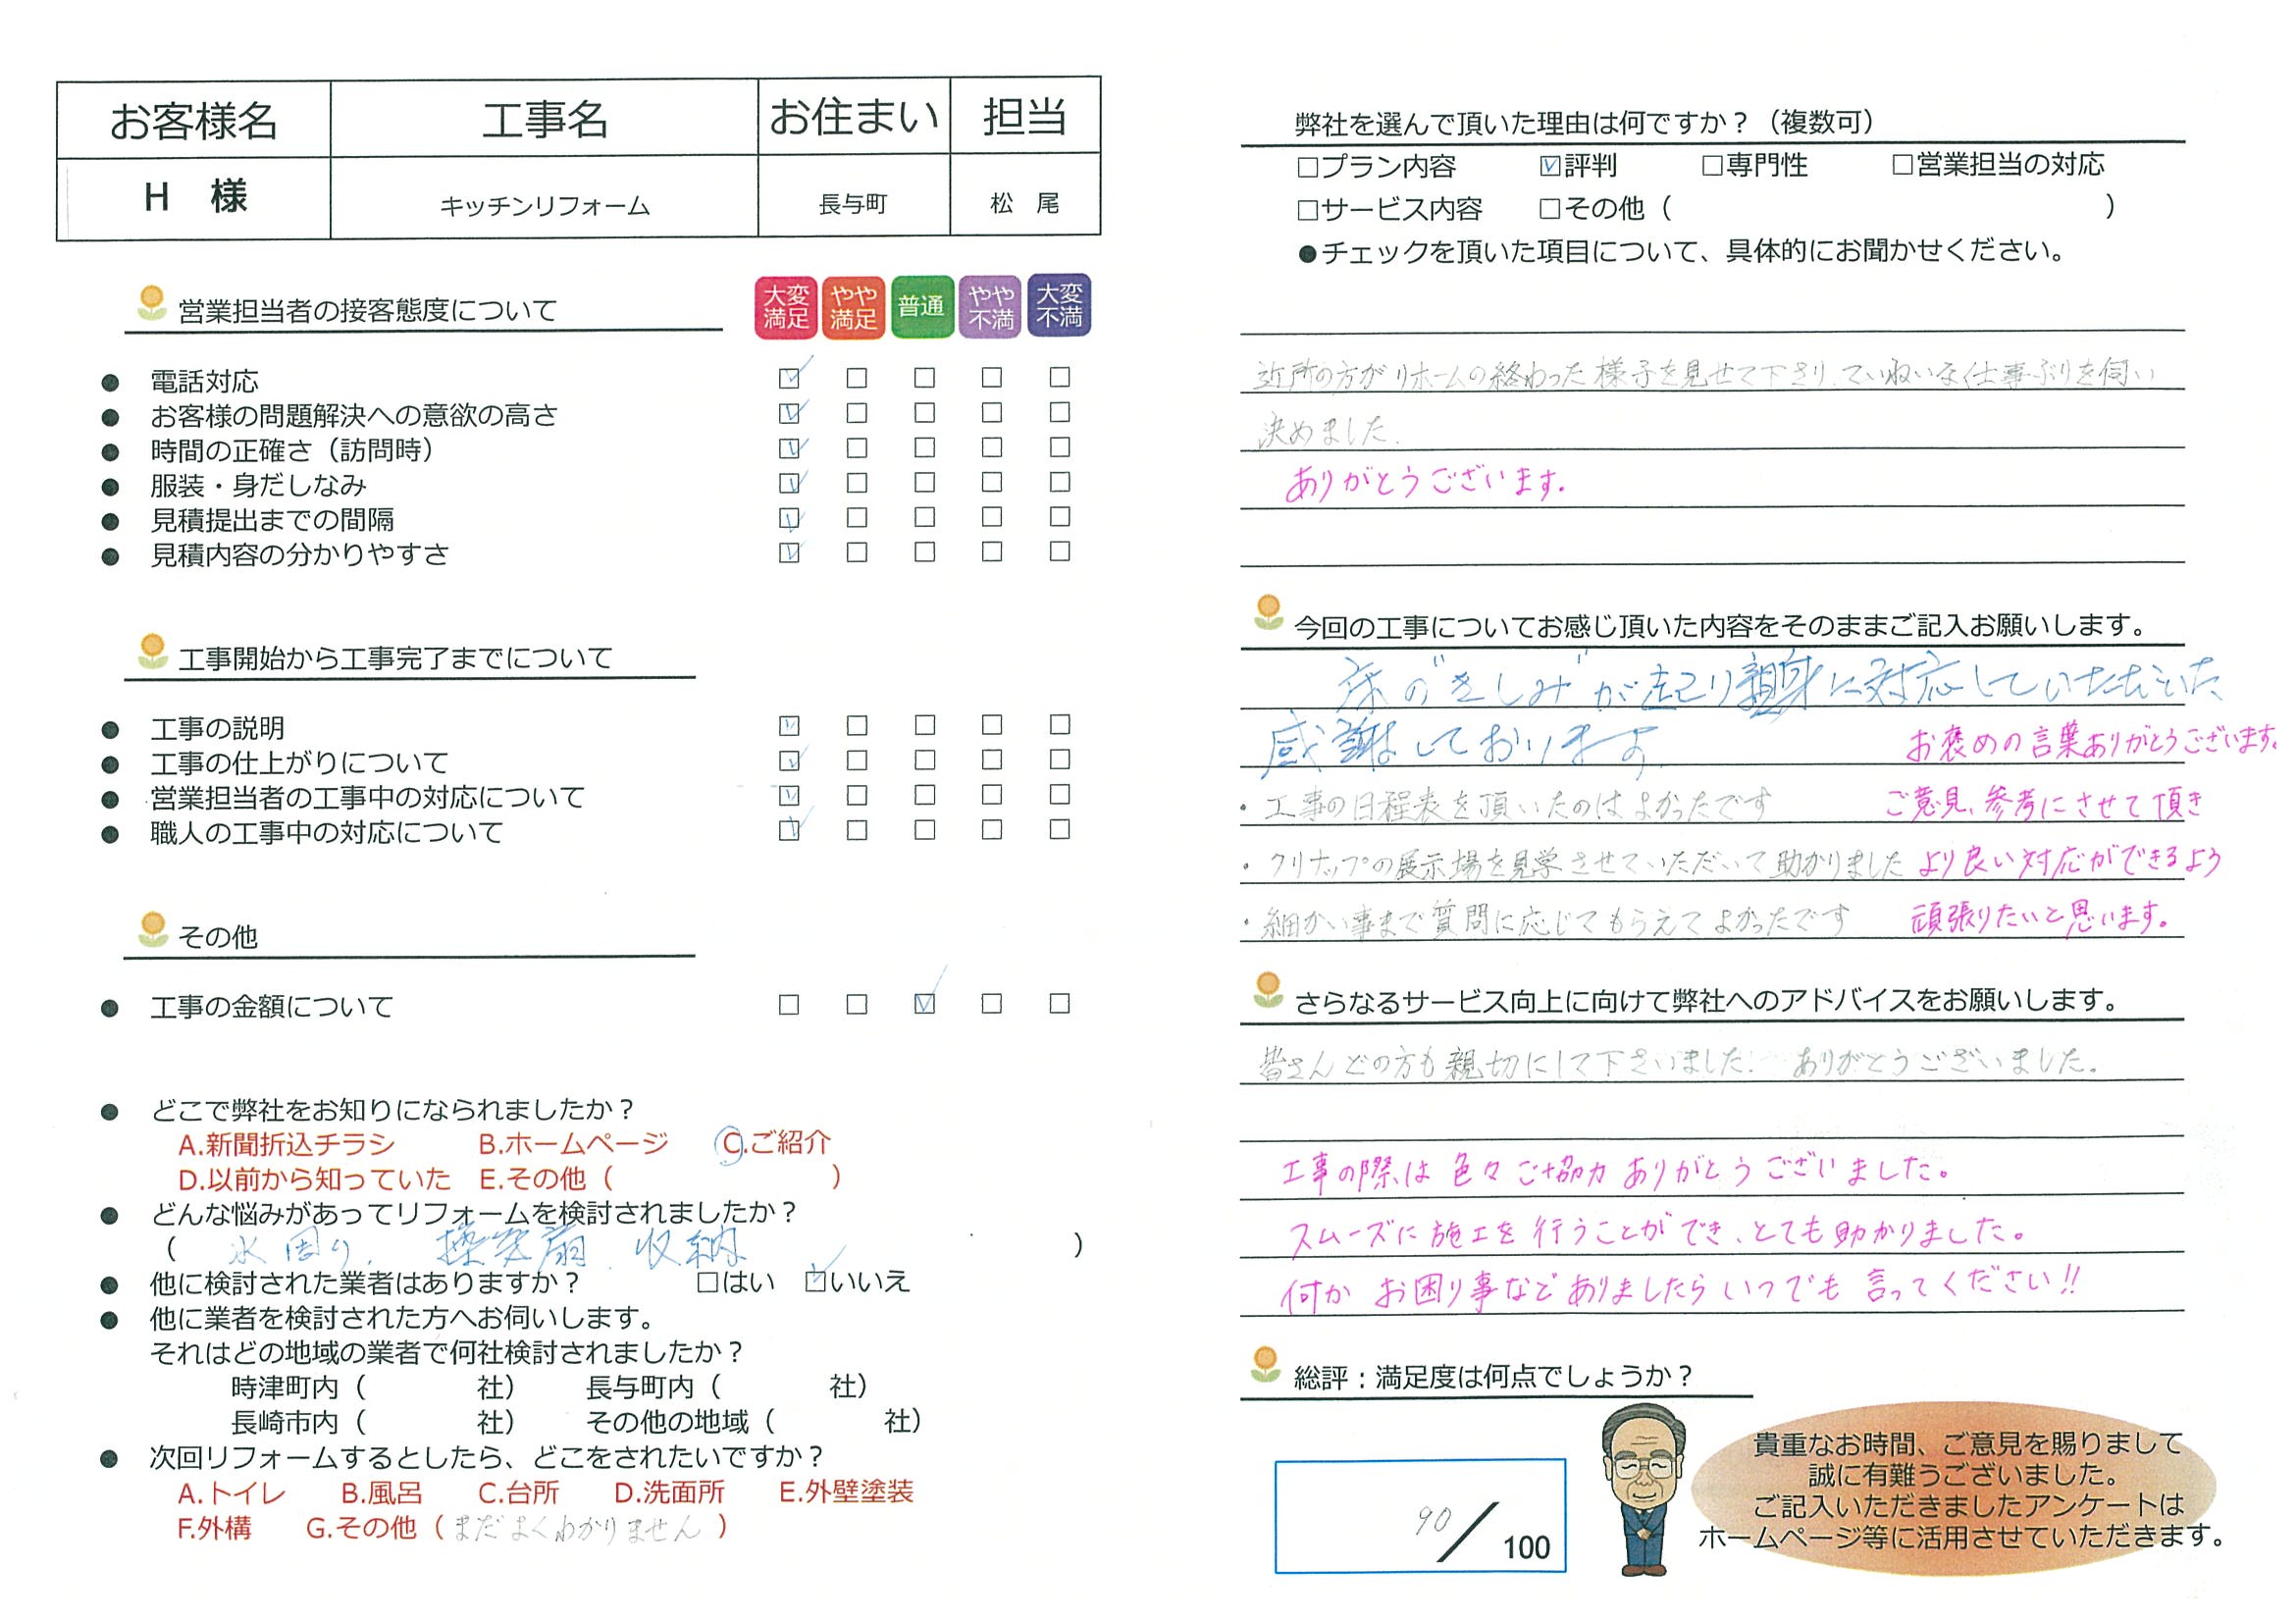 お客様名 工事名 お住まい 担当
H 様 キッチンリフォーム 長与町 松 尾
営業担当者の接客態度について
大変満足 やや満足 普通 やや不満 大変不満
● 電話対応 ☑ □ □ □ □
● お客様の問題解決への意欲の高さ ☑ □ □ □ □
● 時間の正確さ（訪問時） ☑ □ □ □ □
● 服装・身だしなみ ☑ □ □ □ □
● 見積提出までの間隔 ☑ □ □ □ □
● 見積内容の分かりやすさ ☑ □ □ □ □
工事開始から工事完了までについて
● 工事の説明 ☑ □ □ □ □
● 工事の仕上がりについて ☑ □ □ □ □
● 営業担当者の工事中の対応について ☑ □ □ □ □
● 職人の工事中の対応について ☑ □ □ □ □
その他
● 工事の金額について □ □ ☑ □ □
● どこで弊社をお知りになられましたか？
A.新聞折込チラシ B.ホームページ C.ご紹介
D.以前から知っていた E.その他（ ）
● どんな悩みがあってリフォームを検討されましたか？
（ 水周り、換気扇、収納 ）
● 他に検討された業者はありますか？ □はい ☑いいえ
● 他に業者を検討された方へお伺いします。
それはどの地域の業者で何社検討されましたか？
時津町内（ 社） 長与町内（ 社）
長崎市内（ 社） その他の地域（ 社）
● 次回リフォームするとしたら、どこをされたいですか？
A.トイレ B.風呂 C.台所 D.洗面所 E.外壁塗装
F.外構 G.その他（まだよくわかりません）
弊社を選んで頂いた理由は何ですか？（複数可）
□プラン内容 ☑評判 □専門性 □営業担当の対応
□サービス内容 □その他（ ）
●チェックを頂いた項目について、具体的にお聞かせください。
近所の方がリホームの終わった様子を見せて下さり、ていねいな仕事ぶりを伺い
決めました。
ありがとうございます。
今回の工事についてお感じ頂いた内容をそのままご記入お願いします。
床の"きしみ"が起こり親身に対応していただいた
感謝しております。 お褒めの言葉ありがとうございます。
・工事の日程表を頂いたのはよかったです ご意見、参考にさせて頂き
・クリナップの展示場を見学させていただいて助かりました より良い対応ができるよう
・細かい事まで質問に応じてもらえてよかったです 頑張りたいと思います。
さらなるサービス向上に向けて弊社へのアドバイスをお願いします。
皆さんどの方も親切にして下さいました。ありがとうございました。
工事の際は色々ご協力ありがとうございました。
スムーズに施工を行うことができ、とても助かりました。
何かお困り事などありましたらいつでも言ってください!!
総評：満足度は何点でしょうか？
90/100
貴重なお時間、ご意見を賜りまして
誠に有難うございました。
ご記入いただきましたアンケートは
ホームページ等に活用させていただきます。